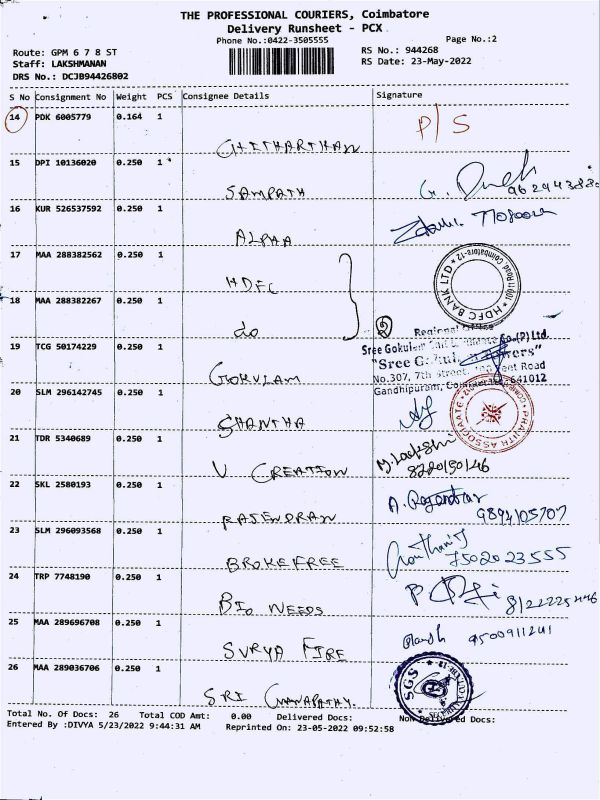 THE PROFESSIONAL COURIERS, Coimbatore
Delivery Runsheet - PCX
Phone No.:0422-3505555
Page No.:2
Route: GPM 6 7 8 ST
RS No.: 944268
Staff: LAKSHMANAN
RS Date: 23-May-2022
DRS No.: DCJB94426802
S No Consignment No Weight PCS Consignee Details Signature
14 PDK 6005779 0.164 1
P/S
CHITHARTHAN
15 DPI 10136020 0.250 1
SAMPATH
16 KUR 526537592 0.250 1
ALPHA
17 MAA 288382562 0.250 1
HDFC
HDFC BANK LTD
18 MAA 288382267 0.250 1
do
2
Regional Office
19 TCG 50174229 0.250 1
Sree Gokulam Co.(P) Ltd.
"Sree Towers"
No.307, 7th Street, Feet Road
Gandhipuram, 641012
GOKULAM
20 SLM 296142745 0.250 1
SHANTHA
PRAJITH ASSOCIATE
21 TDR 5340689 0.250 1
V CREATION
8220150146
22 SKL 2580193 0.250 1
RAJENDRAN
A. Rajendran
9894105707
23 SLM 296093568 0.250 1
BROKEFREE
7502023555
24 TRP 7748190 0.250 1
BIO NEEDS
25 MAA 289696708 0.250 1
9500911241
SURYA FIRE
26 MAA 289036706 0.250 1
SRI GANAPATHY.
SGS
Total No. Of Docs: 26 Total COD Amt: 0.00 Delivered Docs: Non Delivered Docs:
Entered By :DIVYA 5/23/2022 9:44:31 AM Reprinted On: 23-05-2022 09:52:58